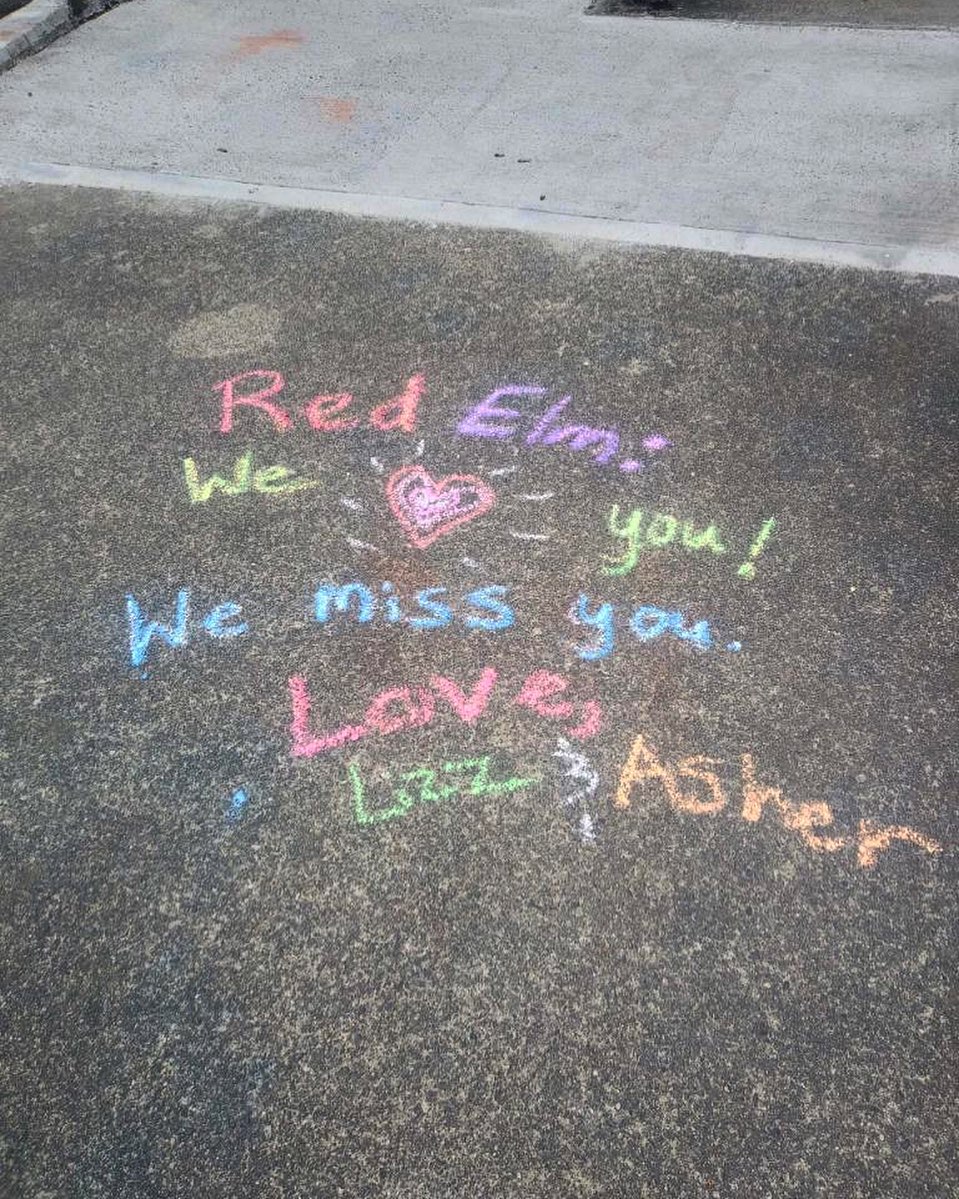 Red Elm:
We ♥ you!
We miss you.
Love,
Lizz & Asher